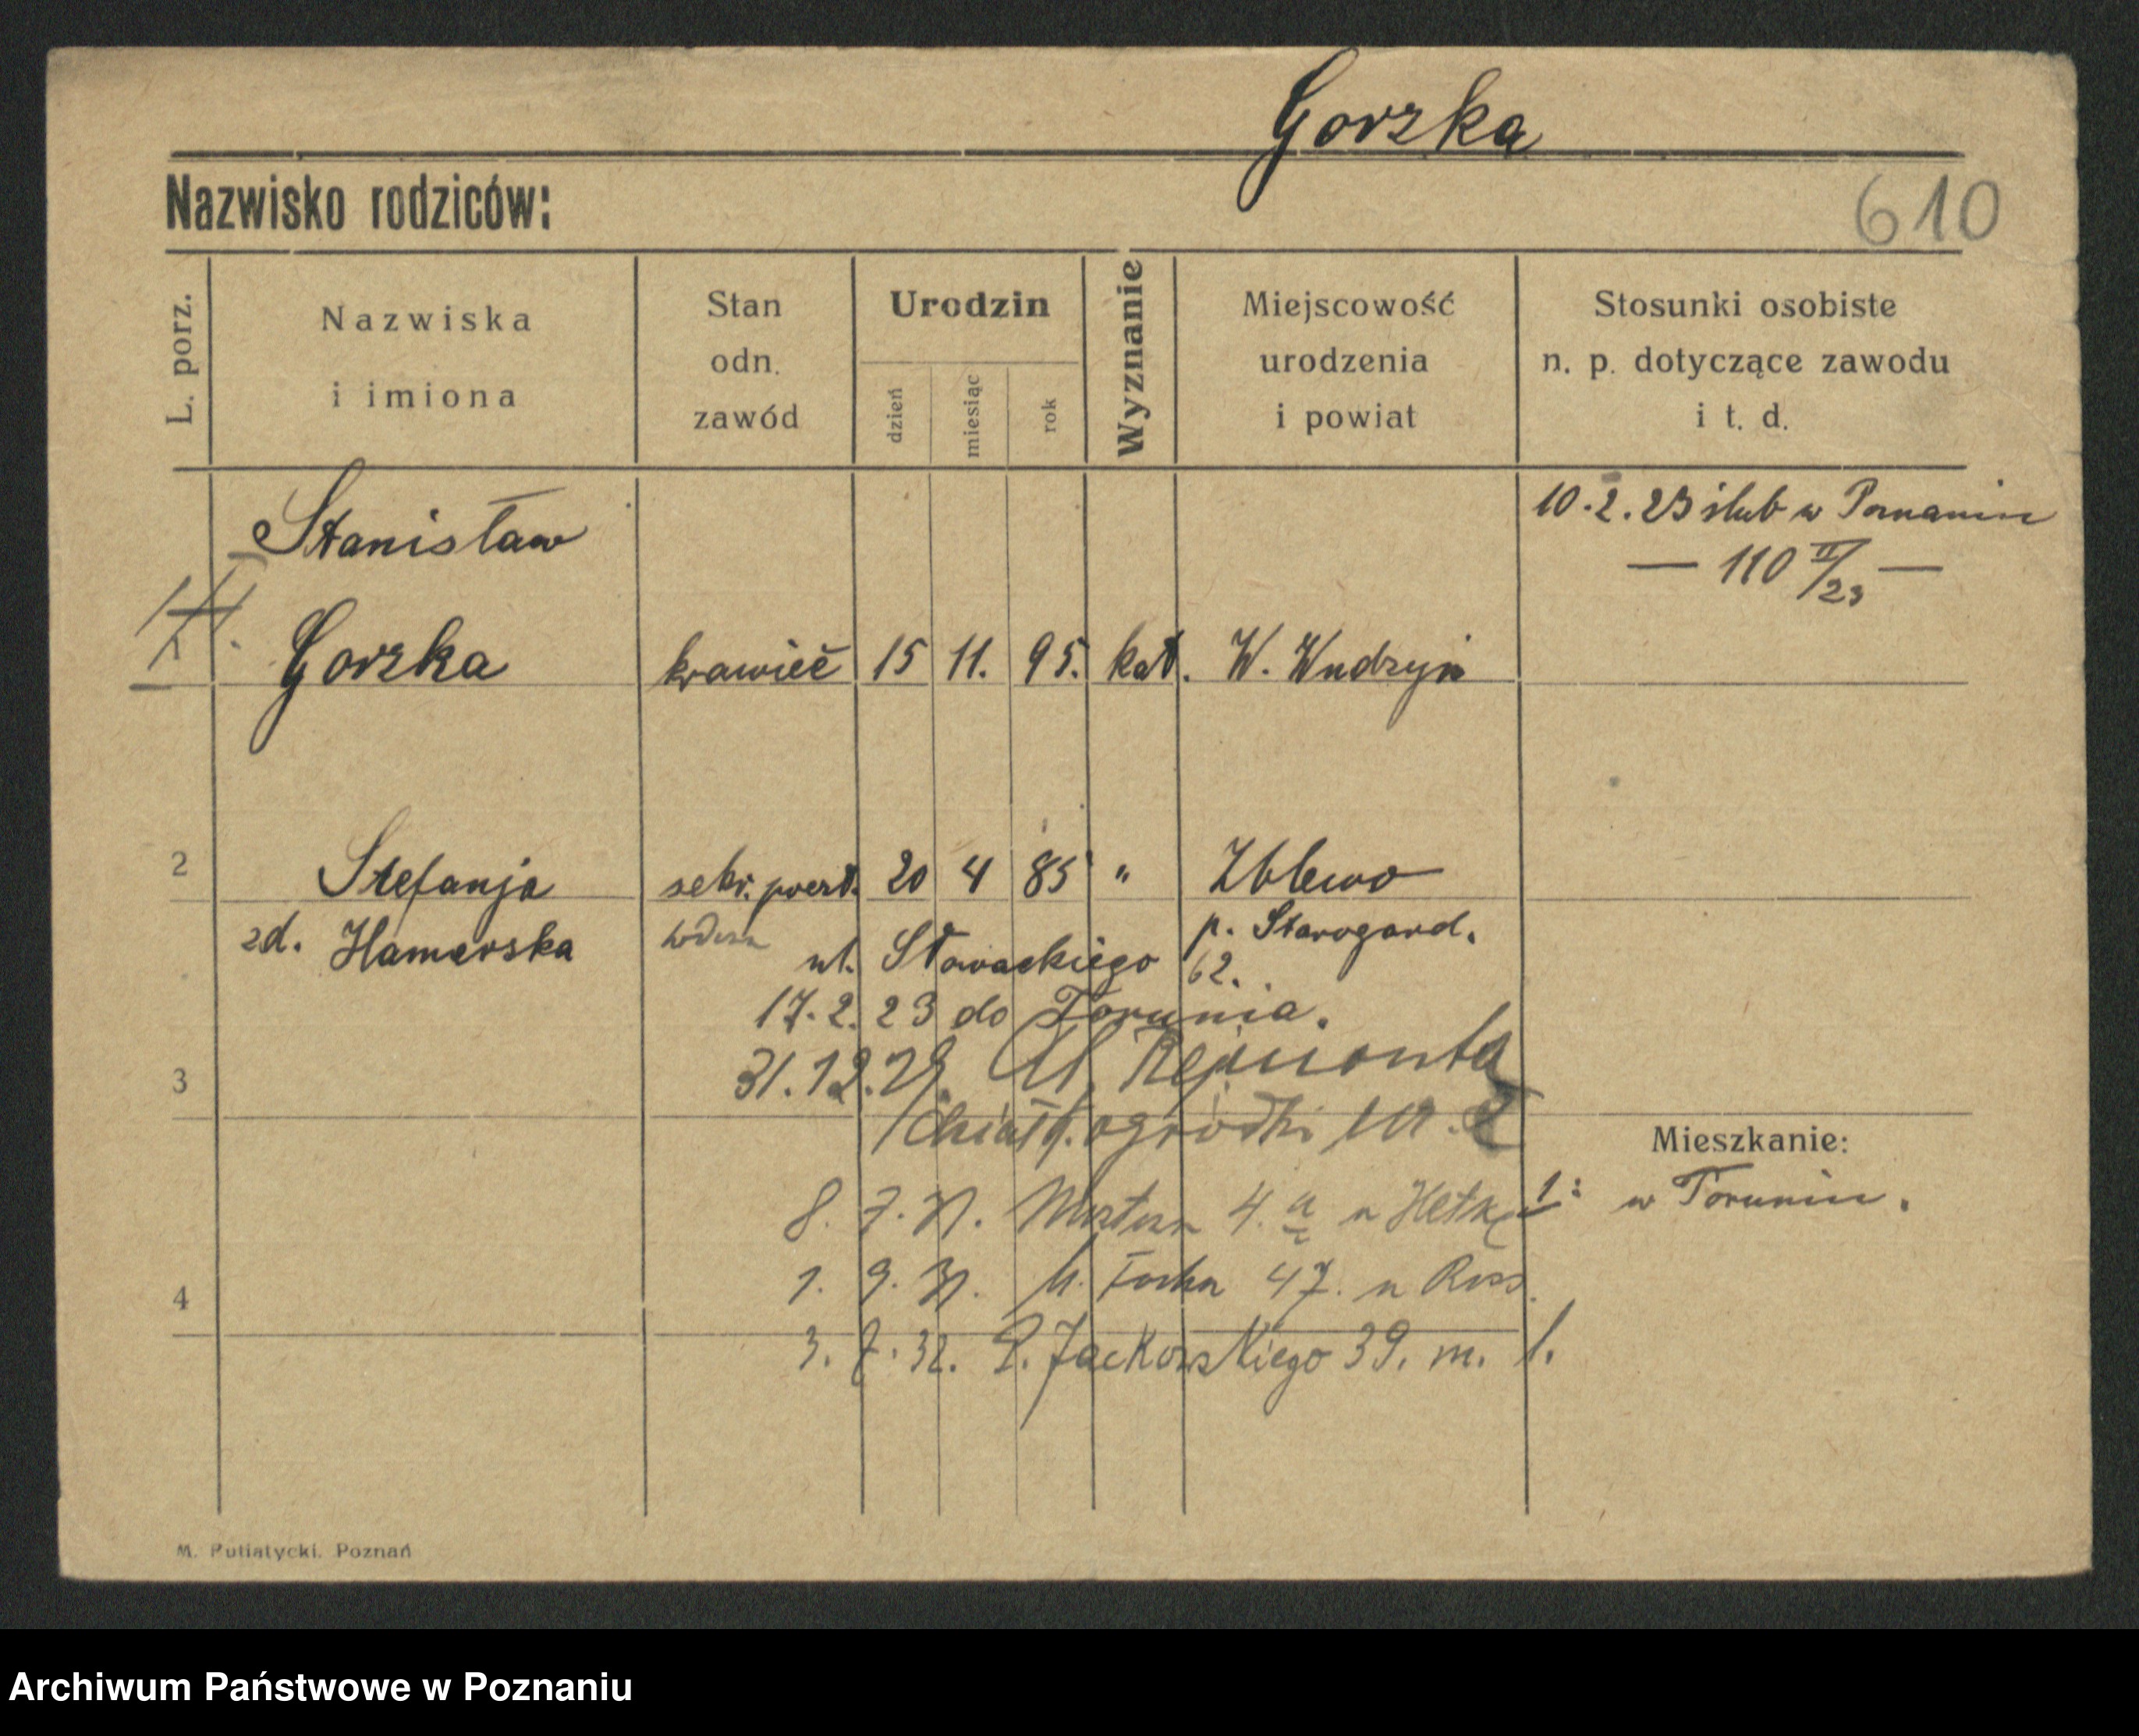 Gorzka
Nazwisko rodziców:
610
L. porz.
Nazwiska
i imiona
Stan
odn.
zawód
Urodzin
dzień
miesiąc
rok
Wyznanie
Miejscowość
urodzenia
i powiat
Stosunki osobiste
n. p. dotyczące zawodu
i t. d.
10.2.23 ślub w Poznaniu
— 110 II/23 —
Stanisław
Gorzka krawiec 15 11. 95. kat. W. Wudzyń
2 Stefanja sekr. poczt. 20 4 85 " Zblewo
zd. Hamerska
p. Starogard.
ul. Słowackiego 62.
17.2.23 do Torunia.
31.12.29. Ul. Rejmonta
3
ogródki
Mieszkanie:
w Toruniu.
8. 7. 31. 4. a u
1. 9. 31. 47. u Ross.
4
3. 7. 32. P. Jackowskiego 39. m. 1.
M. Putiatycki. Poznań
Archiwum Państwowe w Poznaniu